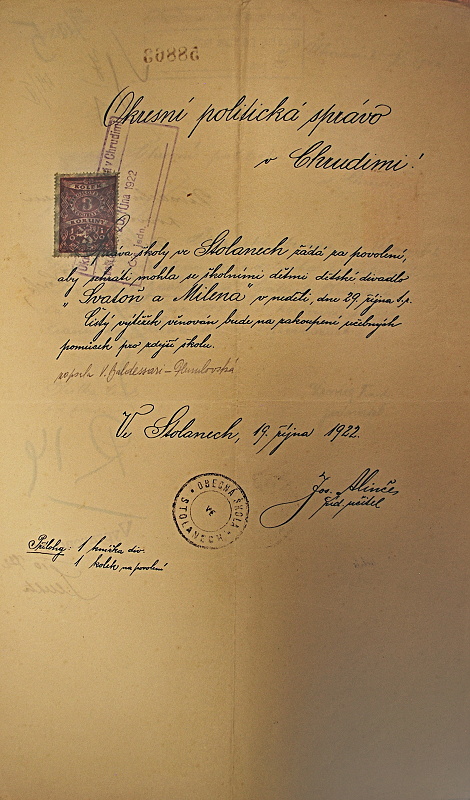 60886
Okresní politická správo
v Chrudimi!
KOLEK
KORUNY
v Chrudimi
října 1922
Správa školy ve Stolanech žádá za povolení,
aby sehráti mohla se školními dětmi dětské divadlo
"Svatoň a Milena" v neděli, dne 29. října t.r.
Čistý výtěžek věnován bude na zakoupení učebných
pomůcek pro zdejší školu.
Ve Stolanech, 19. října 1922.
Jos.
říd. učitel
OBECNÁ ŠKOLA
VE
STOLANECH
Přílohy: 1 knížka div.
1 kolek na povolení